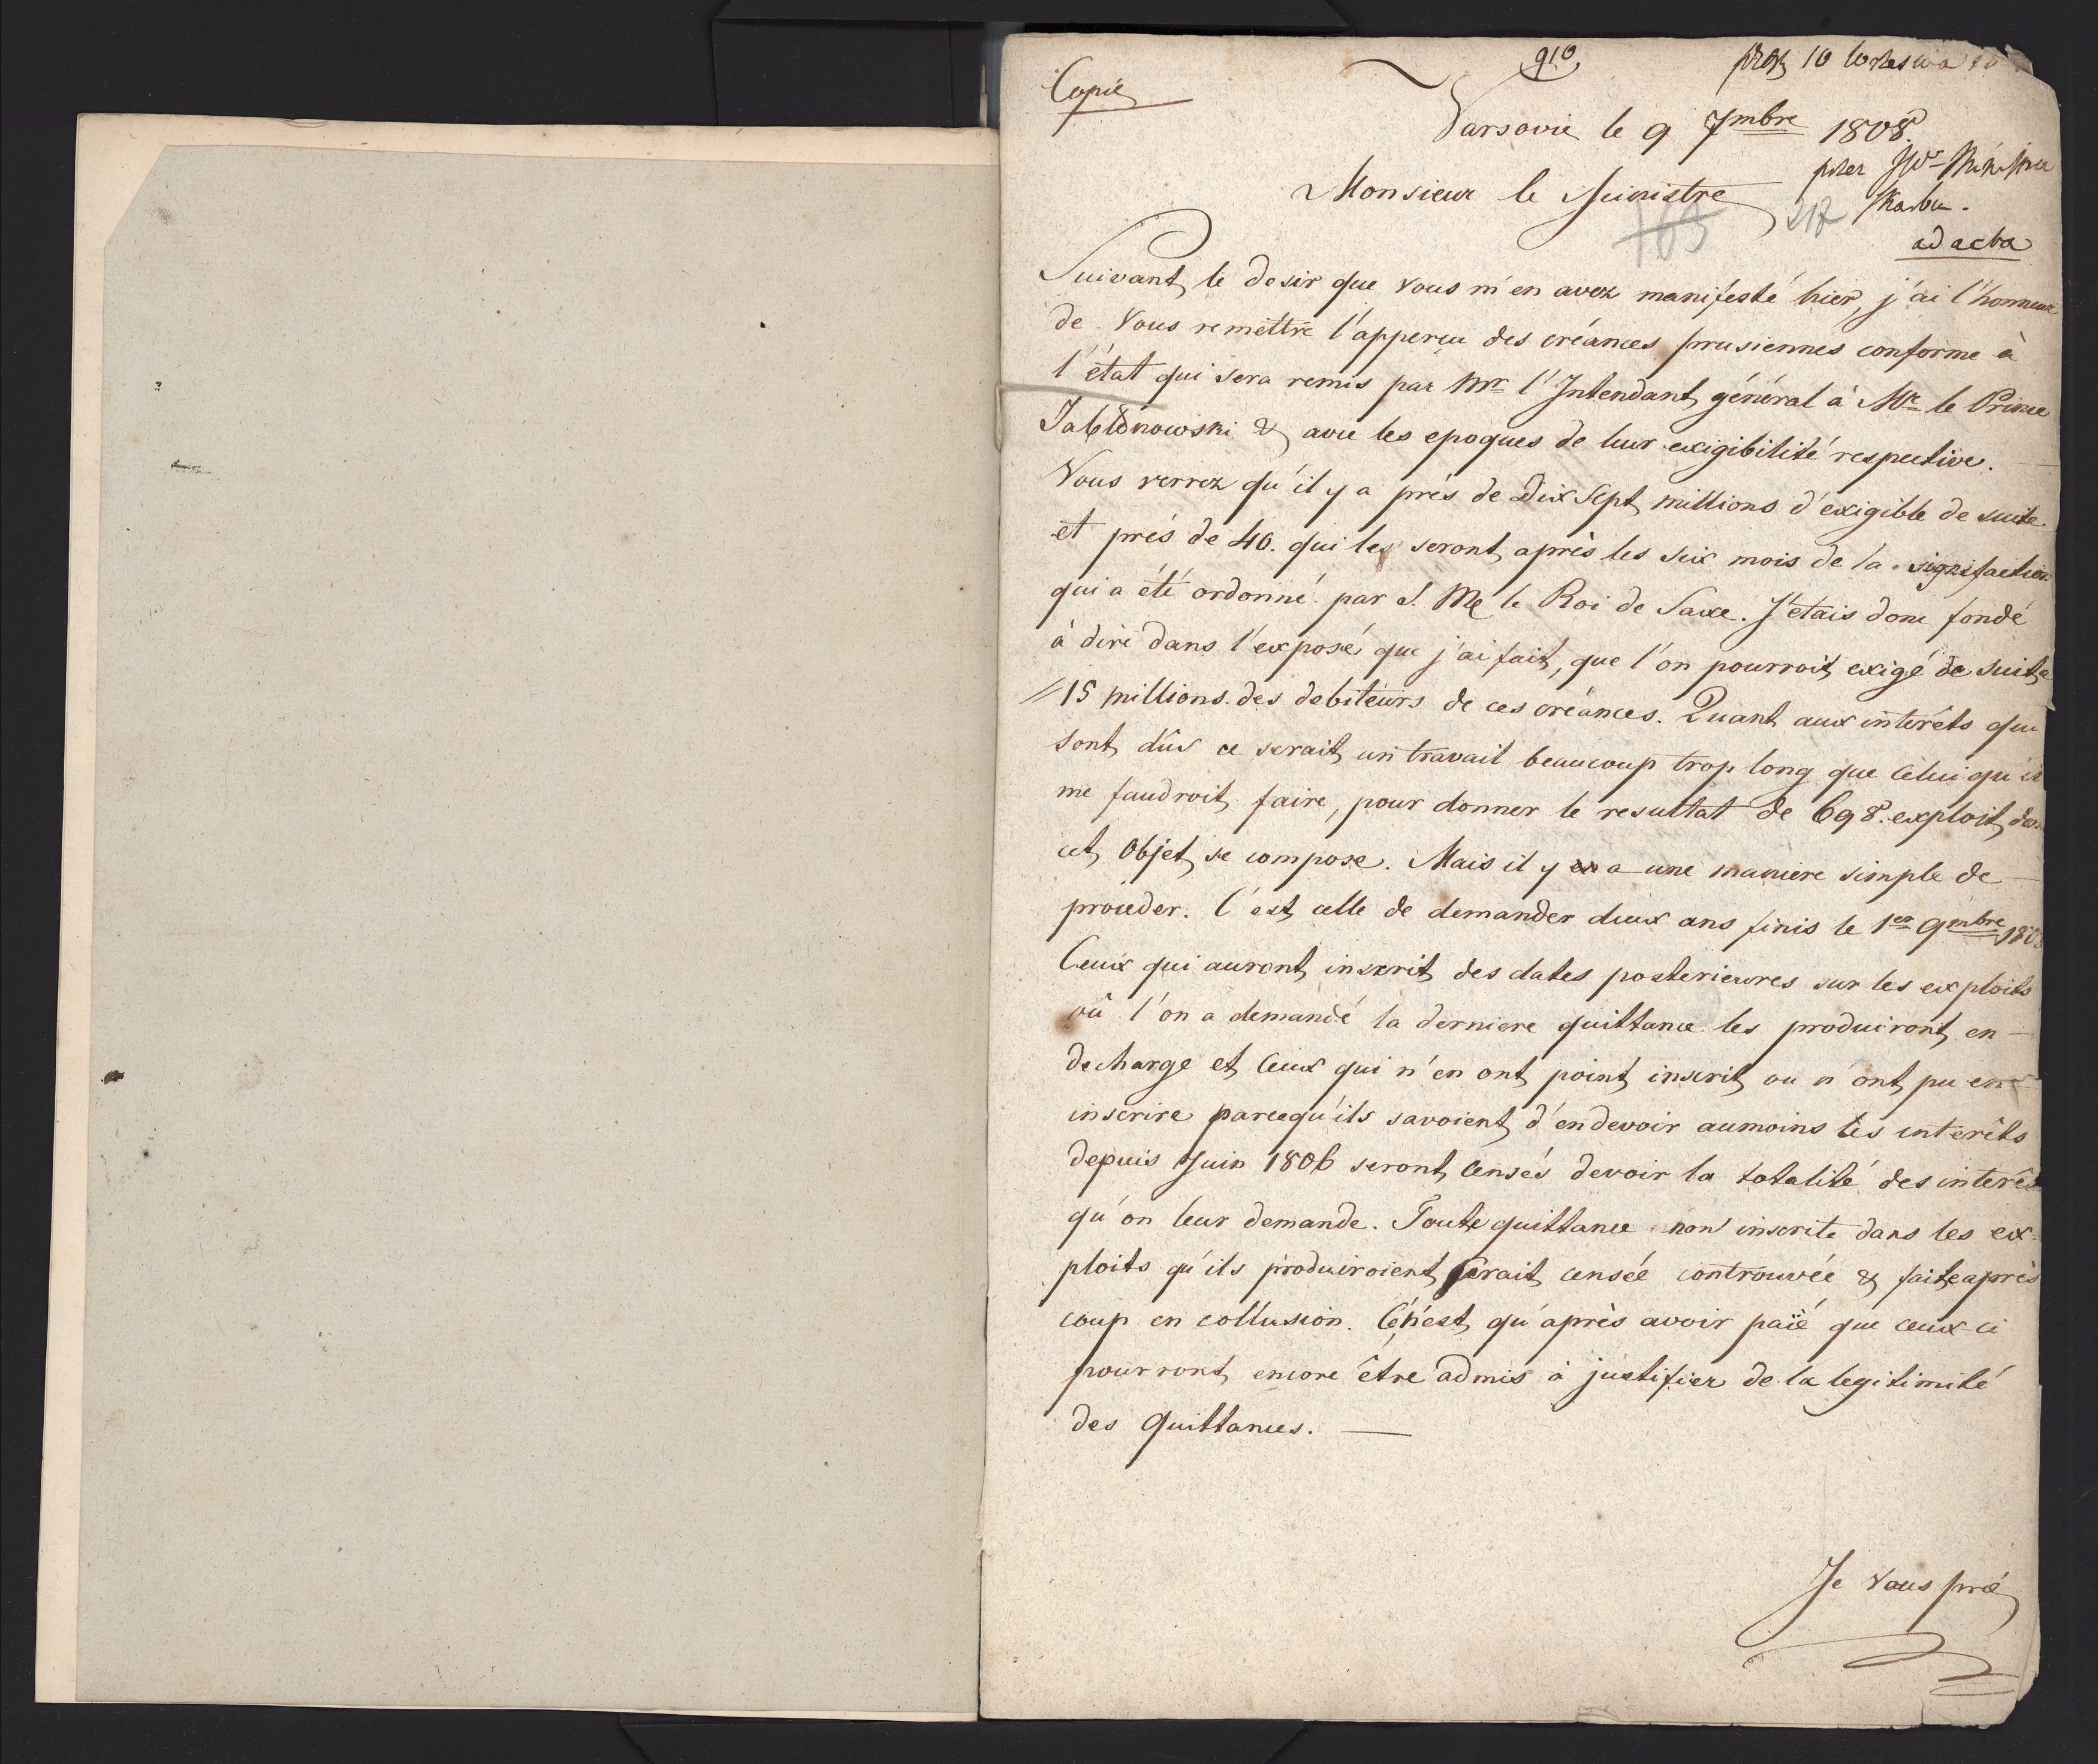 910
Copie
Varsovie le 9 7mbre 1808.
przez JW Ministra
Skarbu.
ad acta
Monsieur le Ministre
163 217
Suivant le desir que vous m'en avez manifesté hier, j'ai l'honneur
de Vous remettre l'apperçu des créances prusiennes conforme à
l'état qui sera remis par Mr l'Intendant général à Mr le Prince
Jabłonowski & avec les epoques de leur exigibilité respective.
Vous verrez qu'il y a près de Dix Sept millions d'exigible de suite
et près de 40. qui les seront après les six mois de la signifaction
qui a été ordonné par S. Me le Roi de Saxe. J'étais donc fondé
à dire dans l'exposé que j'ai fait, que l'on pourroit exigé de suite
15 millions des debiteurs de ces créances. Quant aux interêts qui
sont dûs ce serait un travail beaucoup trop long que celui qu'il
me faudroit faire, pour donner le resultat de 698. exploit dont
cet Objet se compose. Mais il y a une maniere simple de
proceder. C'est celle de demander deux ans finis le 1er 9mbre 1808
Ceux qui auront inscrit des dates posterieures sur les exploits
où l'on a demandé la derniere quittance les produiront en
decharge et Ceux qui n'en ont point inscrit ou n'ont pu en
inscrire parcequ'ils savoient d'en devoir aumoins les interêts
depuis Juin 1806 seront censés devoir la totalité des interêts
qu'on leur demande. Toute quittance non inscrite dans les ex=
ploits qu'ils produiroient serait censée controuvée & faite après
coup en collusion. Ce n'est qu'après avoir païé que ceux-ci
pourront encore être admis à justifier de la legitimité
des Quittances.
Je vous prie